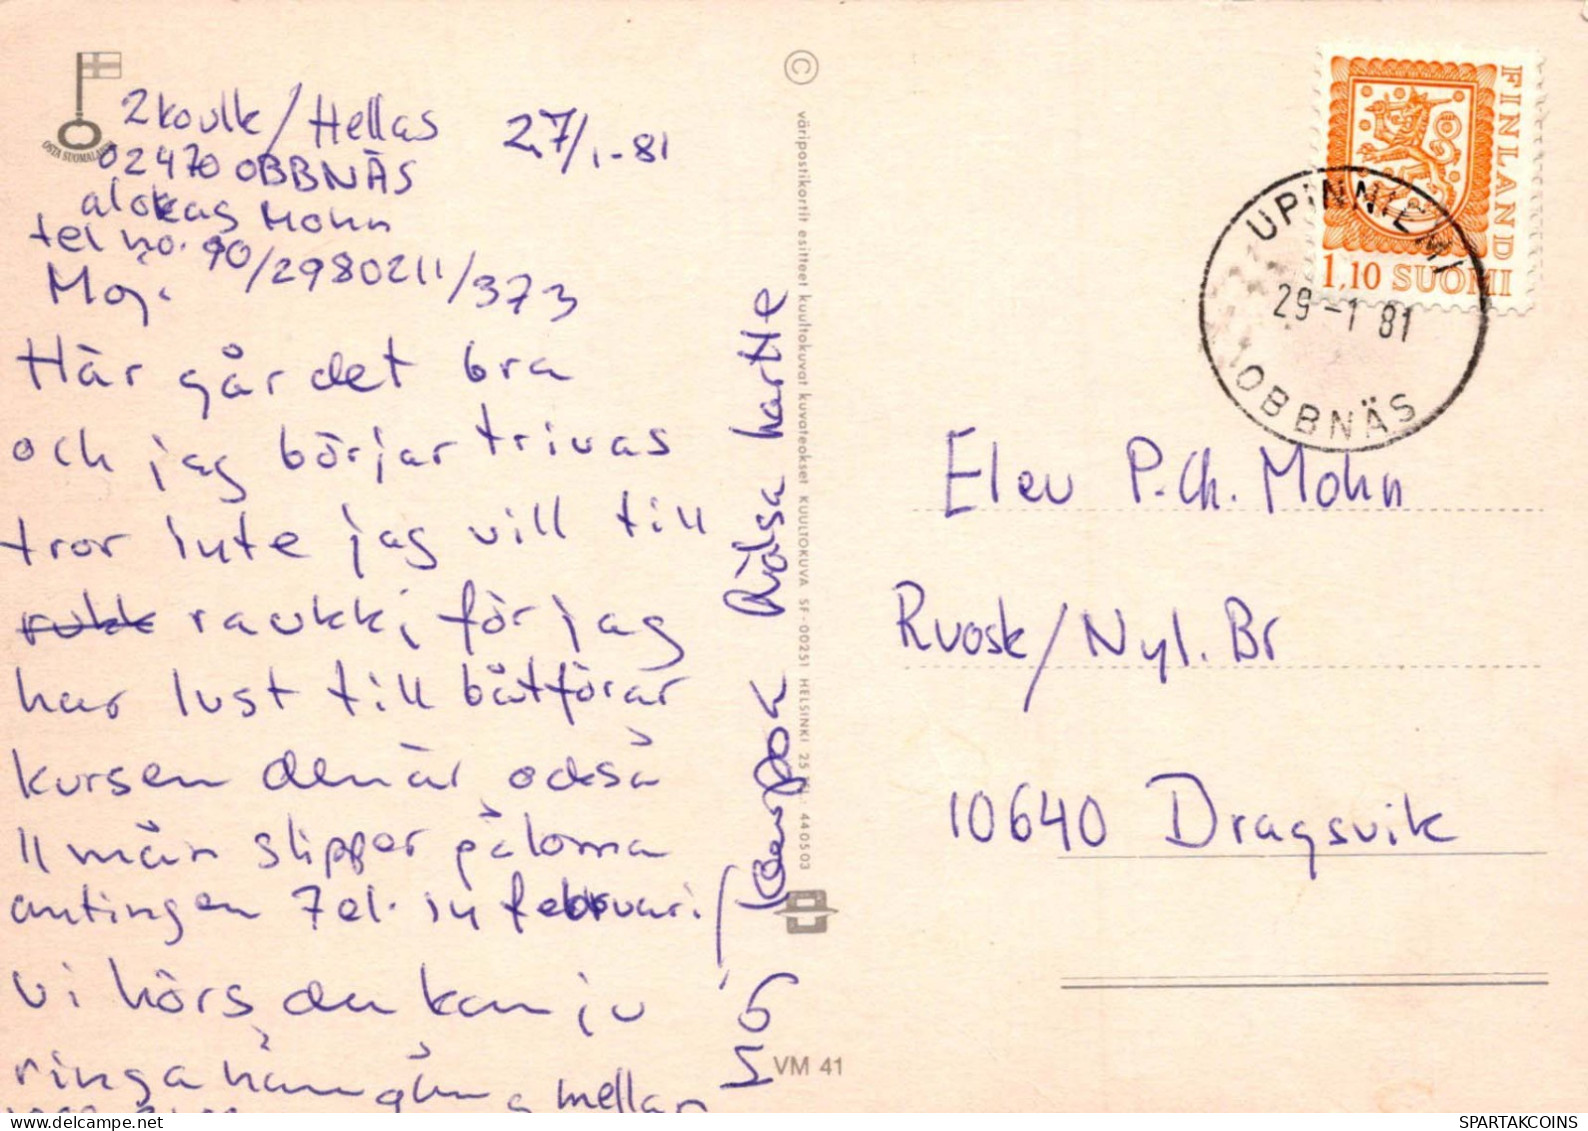 2koulk/Hellas 27/1-81
02470 OBBNÄS
alokas Mohn
tel no. 90/2980211/373
Moj.
Här går det bra
och jag börjar trivas
tror inte jag vill till
raukki, för jag
har lust till båtförar
kursen den är också
11 mån slipper
antingen 7 el. 14 februari
vi hörs, du kan ju
ringa hän gång mellan
Hälsa hartte
OSTA SUOMALAISTA
©
väripostikortit esitteet kuultokuvat kuvateokset KUULTOKUVA SF-00251 HELSINKI 25 PL. 440503
VM 41
FINLAND
1,10 SUOMI
UPINNIEMI
29-1 81
OBBNÄS
Elev P.Ch. Mohn
Ruosk/Nyl. Br
10640 Dragsvik
SPARTAKCOINS